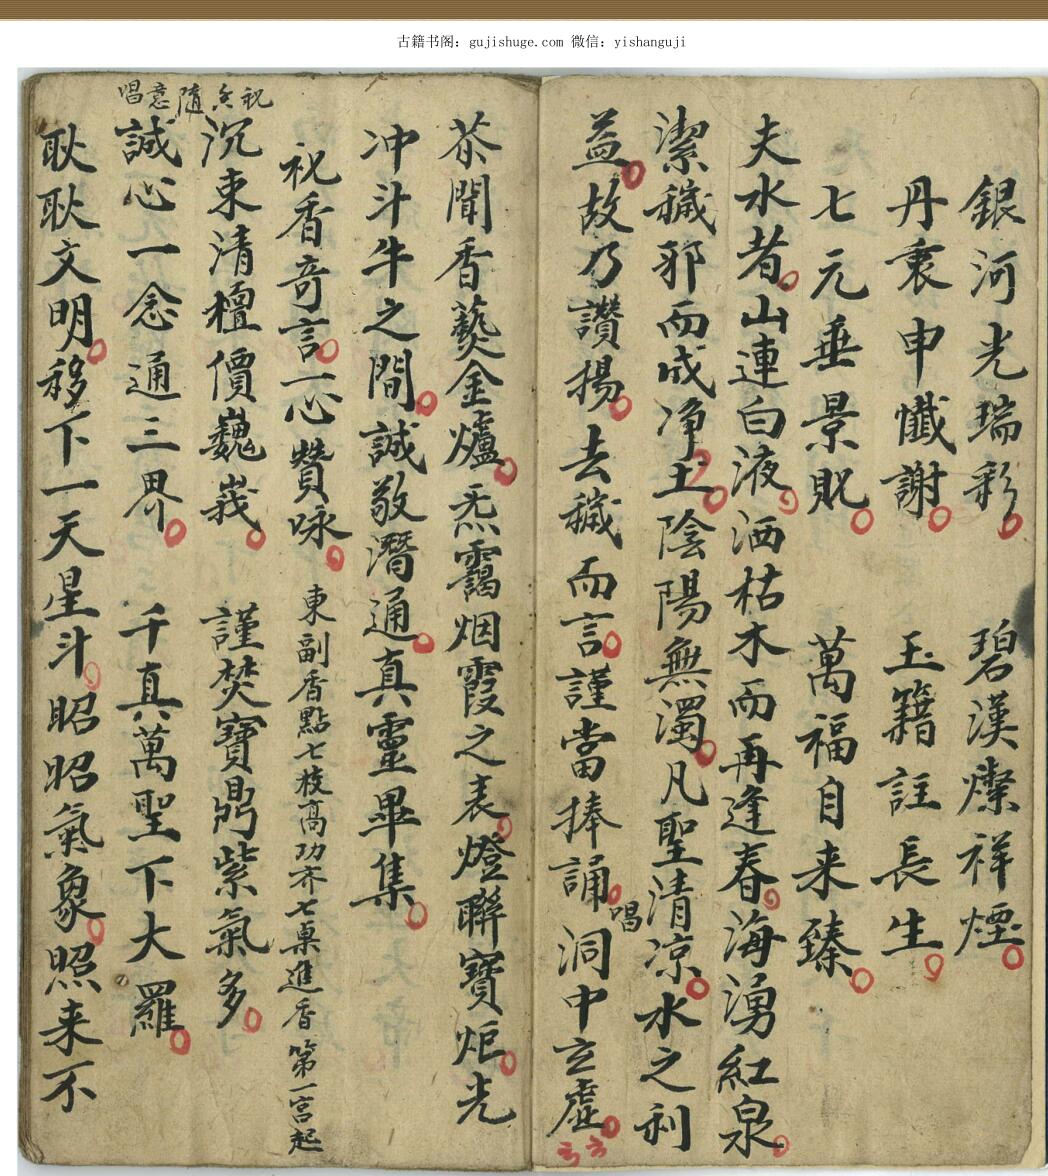 古籍书阁：gujishuge.com 微信：yishanguji
銀河光瑞彩 碧漢燦祥煙
丹衷申懺謝 玉籍註長生
七元垂景貺 萬福自来臻
夫水者山連白液洒枯木而再逢春海湧紅泉
潔穢邪而成净土陰陽無濁凡聖清凉水之利
益故乃讃揚去穢而言謹當捧誦唱洞中玄虛
茶聞香爇金爐炁靄烟霞之表燈聯寶炬光
冲斗牛之間誠敬潛通真靈畢集
祝香竒言一心贊咏 東副香點七枝高功齐七桌進香第一宮起
祝香隨意唱
沉束清檀價巍峩 謹焚寶鼎紫氣多
誠心一念通三界 千真萬聖下大羅
耿耿文明移下一天星斗昭昭氣象照来不